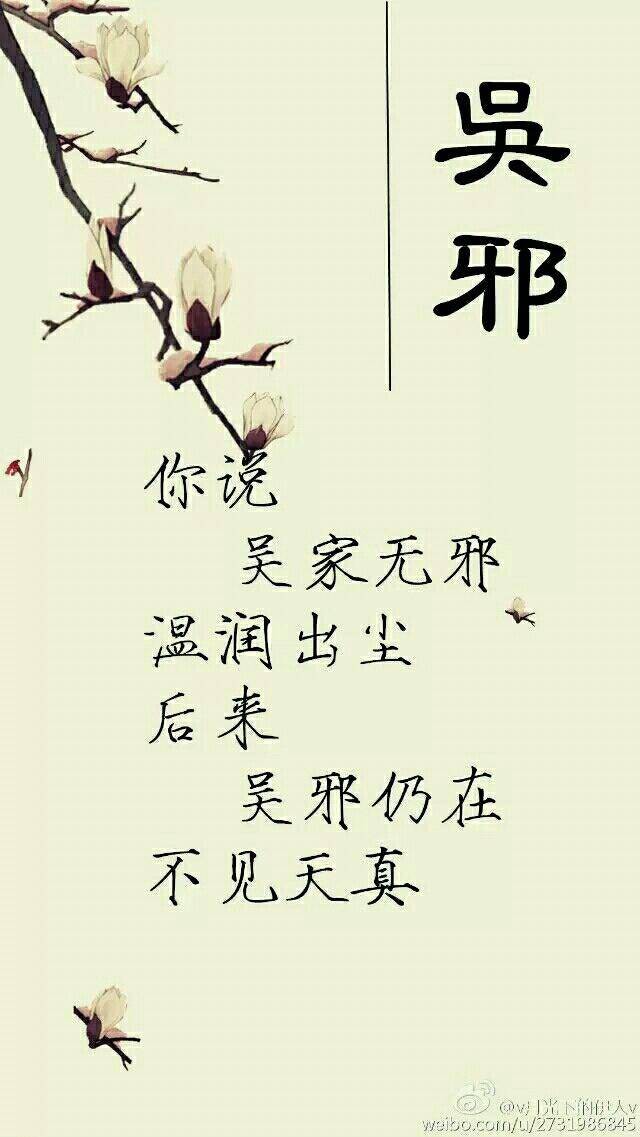 吳邪
你说
吴家无邪
温润出尘
后来
吴邪仍在
不见天真
weibo.com/u/2731986845